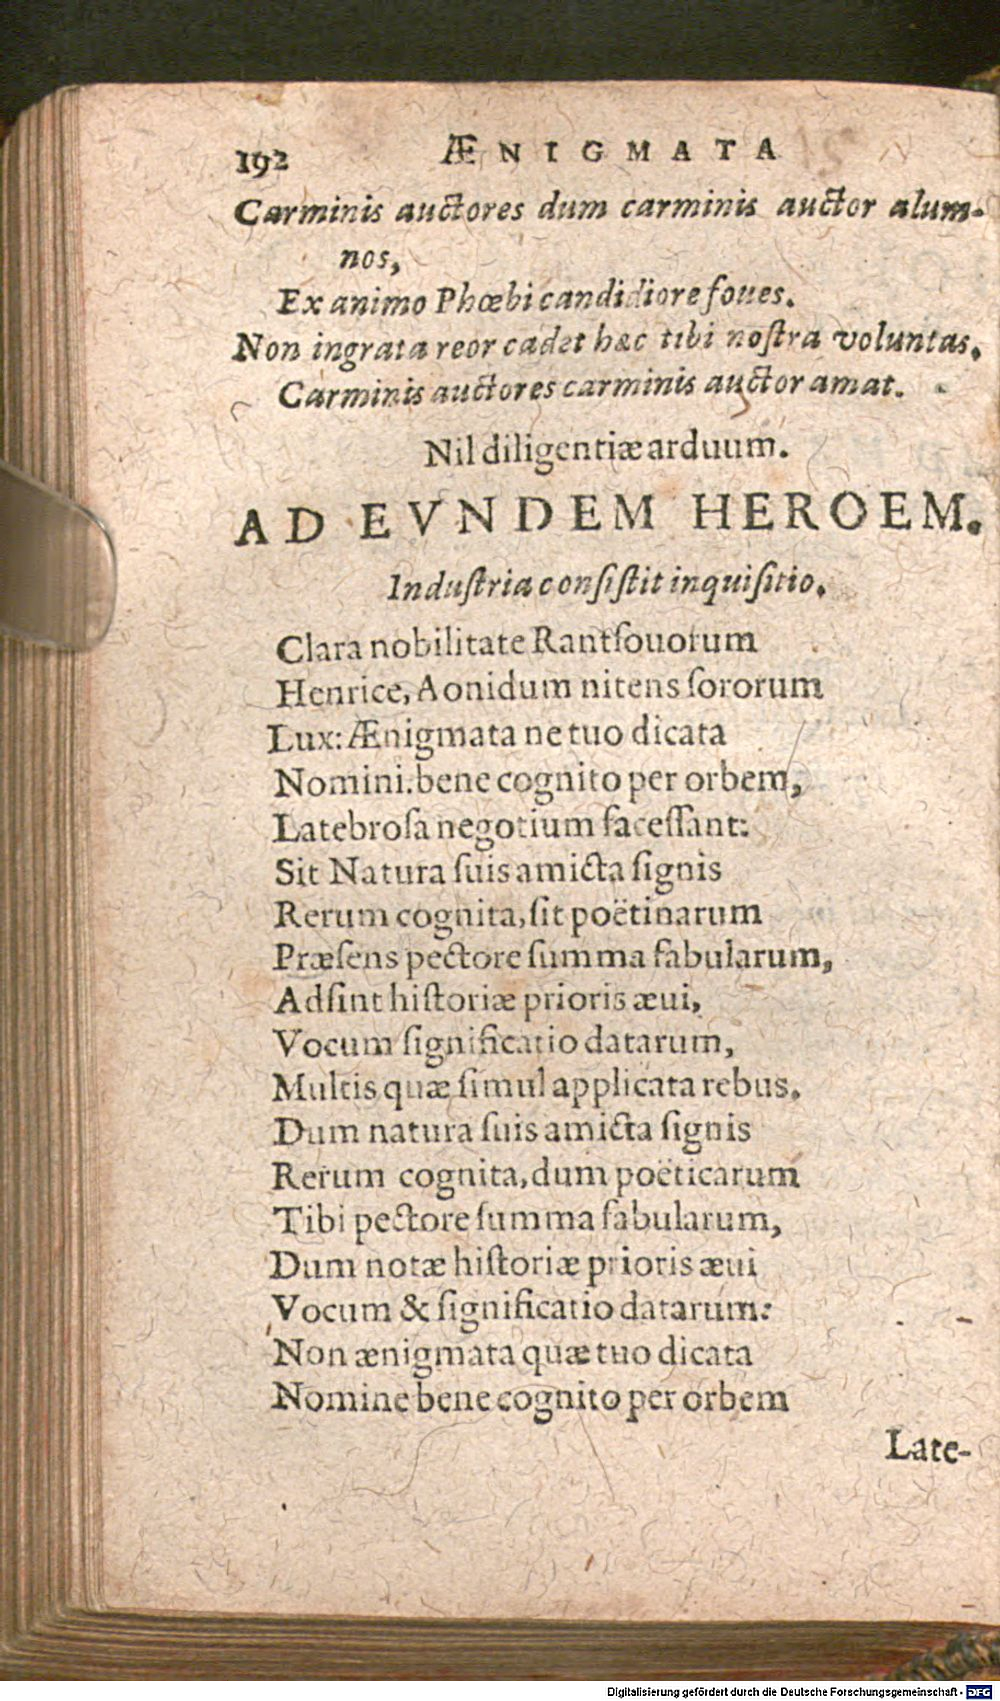 192 ÆNIGMATA
Carminis auctores dum carminis auctor alum-
nos,
Ex animo Phœbi candidiore foues.
Non ingrata reor cadet hæc tibi noſtra voluntas,
Carminis auctores carminis auctor amat.
Nil diligentiæ arduum.
AD EVNDEM HEROEM.
Induſtria conſiſtit inquiſitio,
Clara nobilitate Rantſouorum
Henrice, Aonidum nitens ſororum
Lux: Ænigmata ne tuo dicata
Nomini. bene cognito per orbem,
Latebroſa negotium faceſſant:
Sit Natura ſuis amicta ſignis
Rerum cognita, ſit poëtinarum
Præſens pectore ſumma fabularum,
Adſint hiſtoriæ prioris æui,
Vocum ſignificatio datarum,
Multis quæ ſimul applicata rebus.
Dum natura ſuis amicta ſignis
Rerum cognita, dum poëticarum
Tibi pectore ſumma fabularum,
Dum notæ hiſtoriæ prioris æui
Vocum & ſignificatio datarum:
Non ænigmata quæ tuo dicata
Nomine bene cognito per orbem
Late-
Digitalisierung gefördert durch die Deutsche Forschungsgemeinschaft - DFG